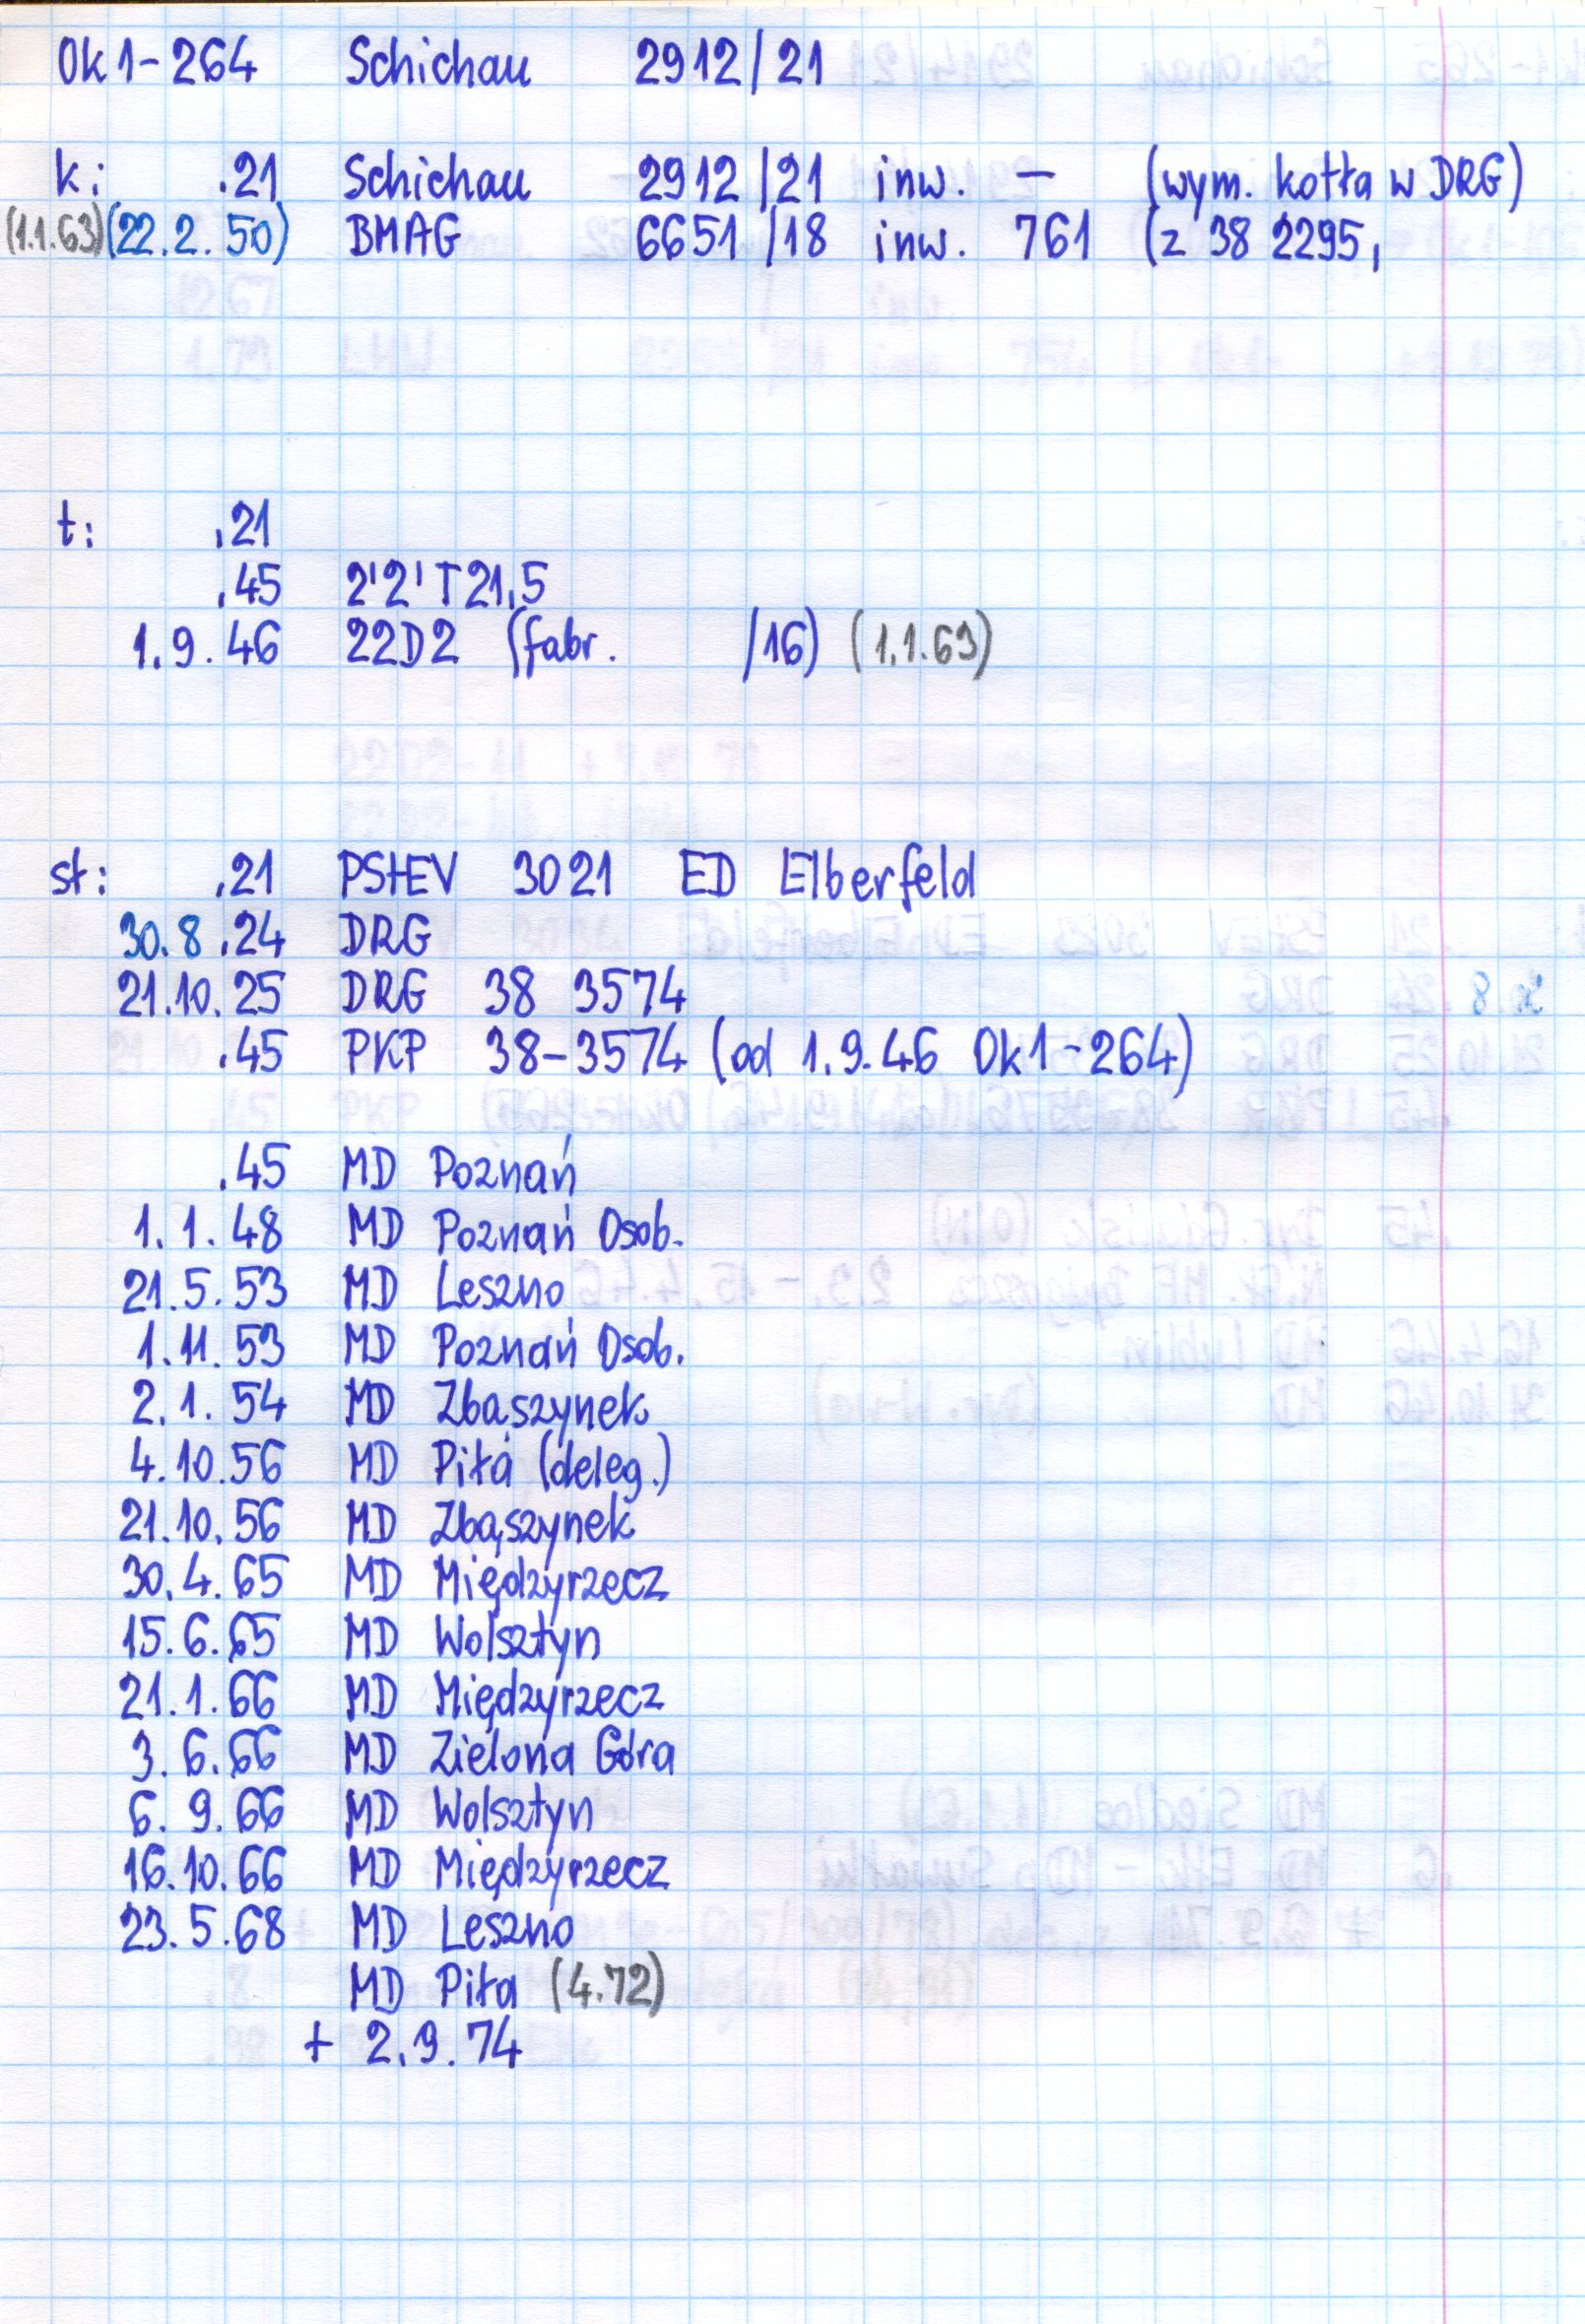 Ok1-264 Schichau 2912/21
k: .21 Schichau 2912/21 inw. - (wym. kotła w DRG)
(1.1.63) (22.2.50) BMAG 6651/18 inw. 761 (z 38 2295,
t: .21
.45 2'2'T21,5
1.9.46 22D2 (fabr. /16) (1.1.63)
st: .21 PStEV 3021 ED Elberfeld
30.8.24 DRG
21.10.25 DRG 38 3574
.45 PKP 38-3574 (od 1.9.46 Ok1-264)
.45 MD Poznań
1.1.48 MD Poznań Osob.
21.5.53 MD Leszno
1.11.53 MD Poznań Osob.
2.1.54 MD Zbąszynek
4.10.56 MD Piła (deleg.)
21.10.56 MD Zbąszynek
30.4.65 MD Międzyrzecz
15.6.65 MD Wolsztyn
21.1.66 MD Międzyrzecz
3.6.66 MD Zielona Góra
6.9.66 MD Wolsztyn
16.10.66 MD Międzyrzecz
23.5.68 MD Leszno
MD Piła (4.72)
+ 2.9.74